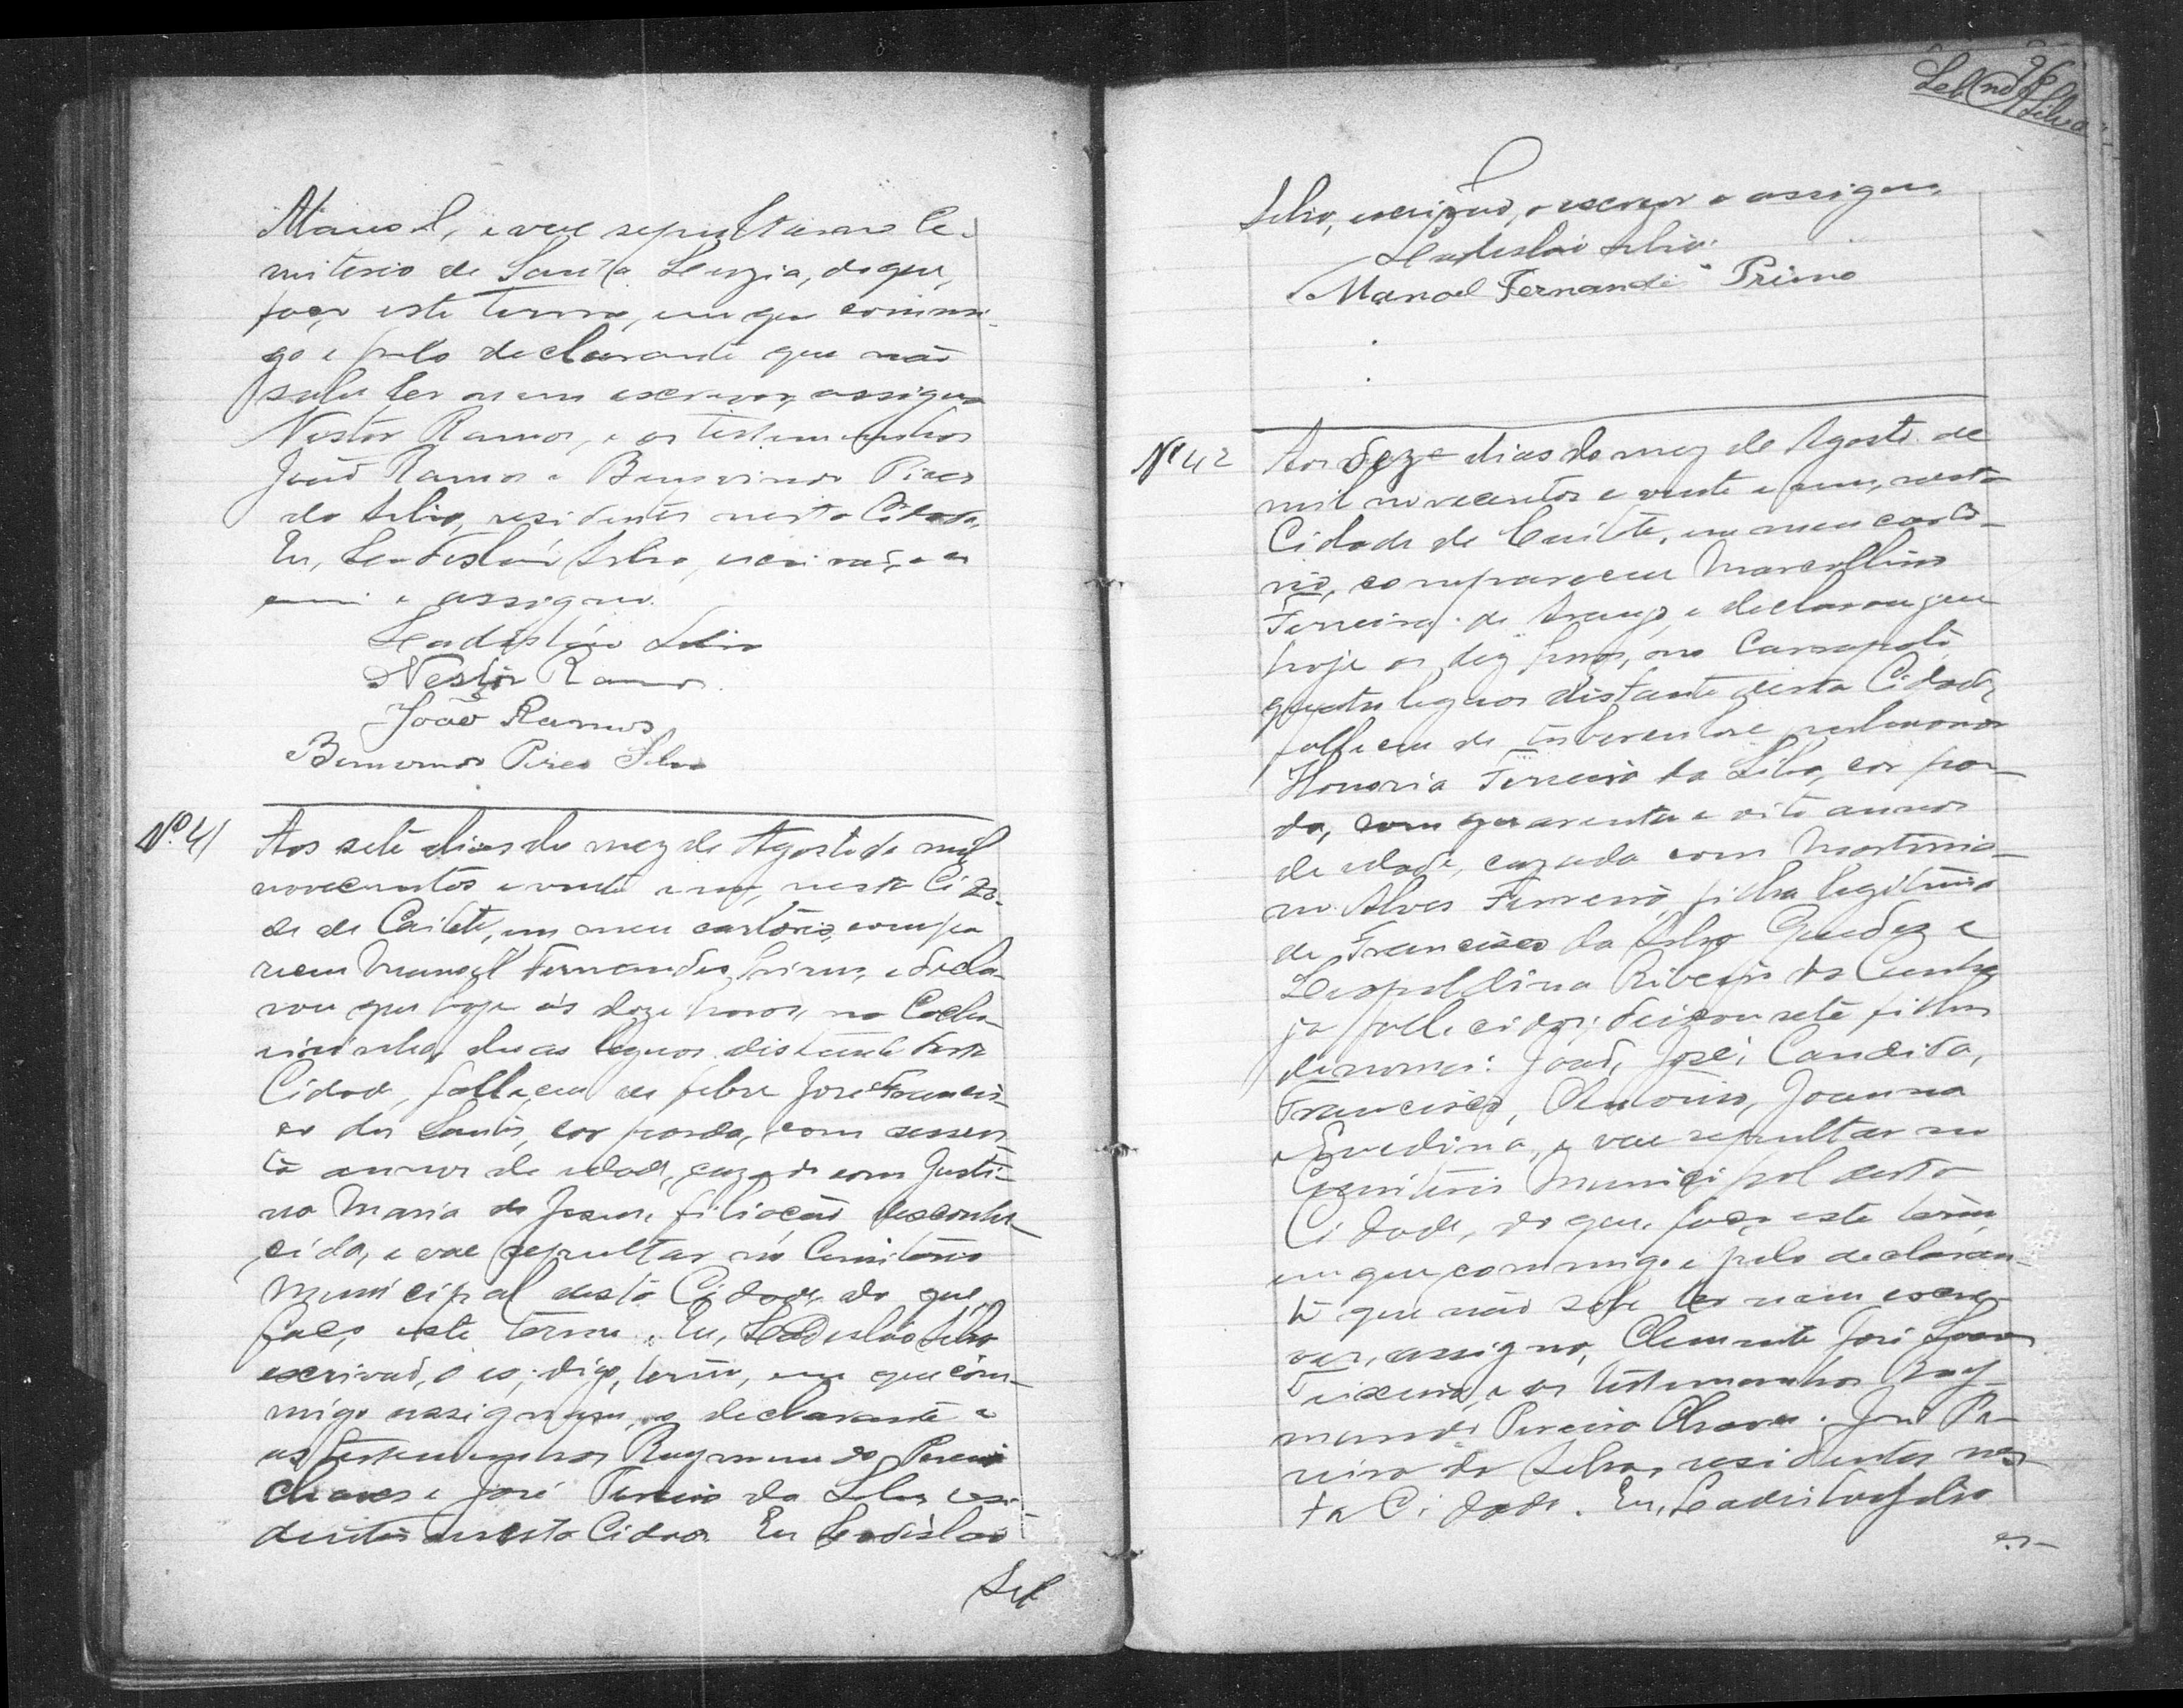 Manoel, e vae sepultar no Ce-
miterio de Santa Luzia, do que,
faço este termo, em que commi-
go e pelo declarante que não
sabe ler nem escrever, assigna
Nestor Ramos, e as testemunhas
João Ramos e Pires
da Silva, residentes nesta Cidade.
Eu, Ladisláo Silva, escrivão, o es
e assigno.
Ladisláo Silva
Nestôr Ramos.
João Ramos
Pires Silva
Nº 41 Aos sete dias do mez de Agosto de mil
novecentos e vinte e um, nesta Cida-
de de Caiteté, em meu cartório, compa
receu Manoel Fernandes Primo, e decla-
rou que hoje ás doze horas, no
duas leguas distante desta
Cidade, falleceu de febre José Francis-
co dos Santos, cor parda, com sessen-
ta annos de edade, cazado com Justi-
na Maria de Jesus, filiação desconhe
cida, e vae sepultar no Cemiterio
Municipal desta Cidade, do que,
faço este termo. Eu, Ladisláo Silva
escrivão, o es, digo, termo, em que com-
migo assignam, o declarante e
as testemunhas Raymundo Pereira
Chaves e José Pereira da Silva, resi-
dentes nesta Cidade. Eu Ladisláo
Sil
96
Ladisláo Silva
Silva, escrivão, o escrevi e assigno.
Ladisláo Silva.
Manoel Fernande Primo
Nº 42 Aos doze dias do mez de Agosto de
mil novecentos e vinte e um, nesta
Cidade de Caiteté, em meu carto-
rio, compareceu Marcellino
Ferreira de Araujo, e declarou que
hoje as dez horas, no Carrapato,
quatro leguas distante desta Cidade,
falleceu de tuberculose pulmonar
Honoria Ferreira da Silva, cor par-
da, com quarenta e oito annos
de edade, cazada com Martinia-
no Alves Ferreira, filha legitima
de Francisco da Silva Guedez e
Leopoldina Ribeiro da Cunha
ja fallecidos; deixou sete filhos
de nomes: João, José, Candida,
Francisco, Antonio, Joanna
e , e vae sepultar no
Cemiterio Municipal desta
Cidade, do que, faço este termo,
em que commigo e pelo declaran-
te que não sabe ler nem escre-
ver, assigna, Clemente José
Teixeira, e as testemunhas Ray-
mundo Pereira Chaves e José Pe-
reira da Silva, residentes nes-
ta Cidade. Eu, Ladisláo Silva
es-